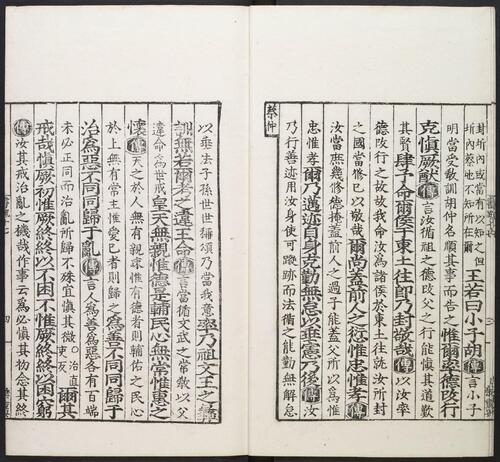 封圻內或當有以知之但
圻內蔡地不知所在爾 王若曰小子胡傳言小子
明當受敎訓胡仲名順其事而告之惟爾率德攺行
克愼厥猷傳言汝循祖之德攺父之行能愼其道歎
其賢肆予命爾侯于東土往即乃封敬哉傳以汝率
德攺行之故故我命汝爲諸侯於東土往就汝所封
之國當修己以敬哉爾尚蓋前人之愆惟忠惟孝傳
汝當庶幾修德掩蓋前人之過子能蓋父所以爲惟
忠惟孝爾乃邁迹自身克勤無怠以垂憲乃後傳汝
乃行善迹用汝身使可蹤跡而法循之能勤無解怠
蔡仲
以垂法子孫世世稱頌乃當我意率乃祖文王之彝
訓無若爾考之違王命傳言當循文武之常敎以父
違命爲世戒皇天無親惟德是輔民心無常惟惠之
懷傳天之於人無有親疎惟有德者則輔佑之民心
於上無有常主惟愛己者則歸之爲善不同同歸于
治爲惡不同同歸于亂傳言人爲善爲惡各有百端
未必正同而治亂所歸不殊宜愼其微○治直吏反爾其
戒哉愼厥初惟厥終終以不困不惟厥終終以困窮
傳汝其戒治亂之機哉作事云爲必愼其初念其終